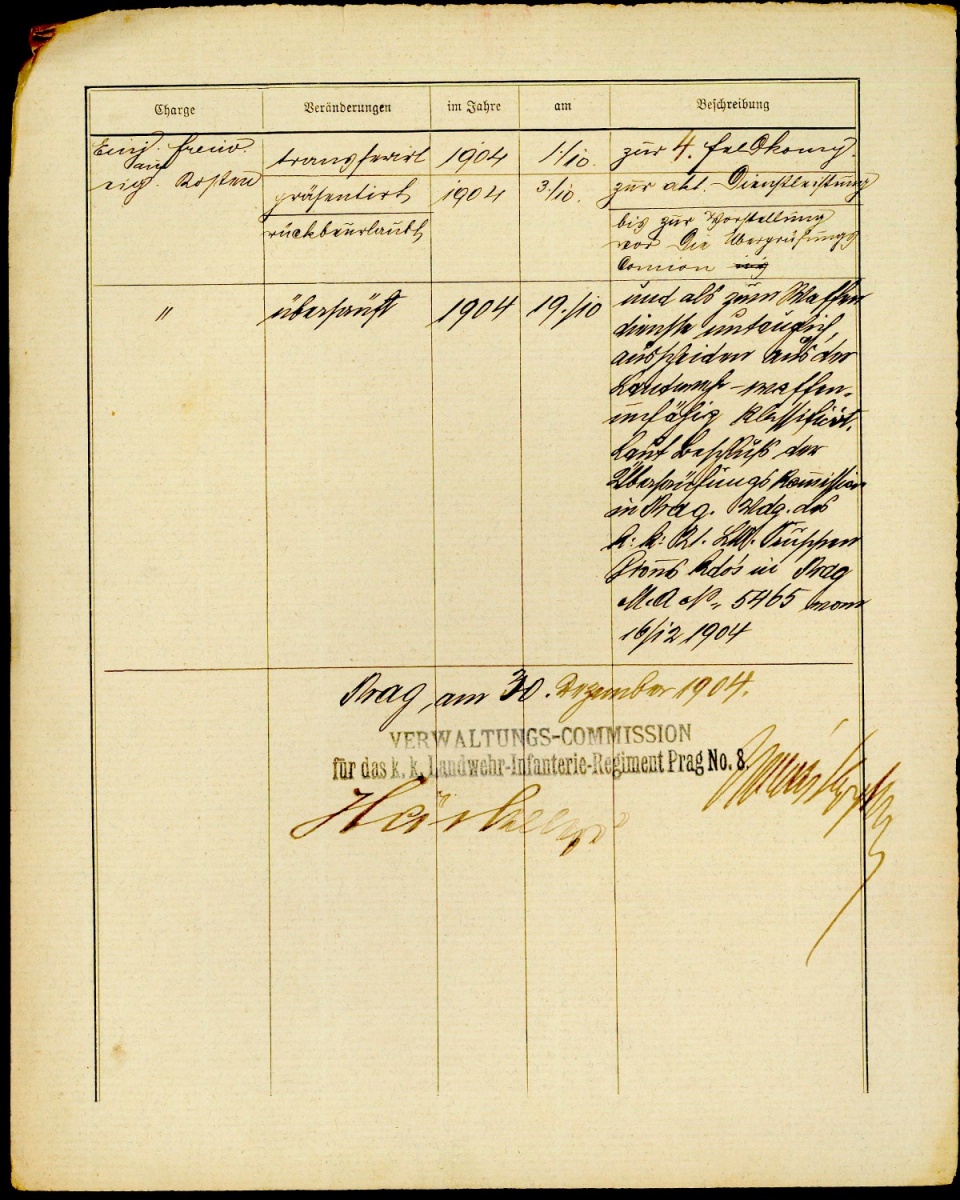 Charge Veränderungen im Jahre am Beschreibung
Einj. freiw. transferirt 1904 1/10. zur 4. Feldkomp.
auf
eig. Kosten präsentirt 1904 3./10. zur akt. Dienstleistung
rückbeurlaubt bis zur Vorstellung
vor die Überprüfungs
Comion
" überprüft 1904 19./10 und als zum Waffen
dienste untauglich,
ausscheiden aus der
Landwehr - waffen-
unfähig klassifizirt.
Laut Beschluß der
Überprüfungs Kommission
in Prag. des
k. k. Truppen
Kdo's in Prag
M.A. Nº 5465 vom
16/12 1904
Prag, am 30. Dezember 1904.
VERWALTUNGS-COMMISSION
für das k. k. Landwehr-Infanterie-Regiment Prag No. 8.